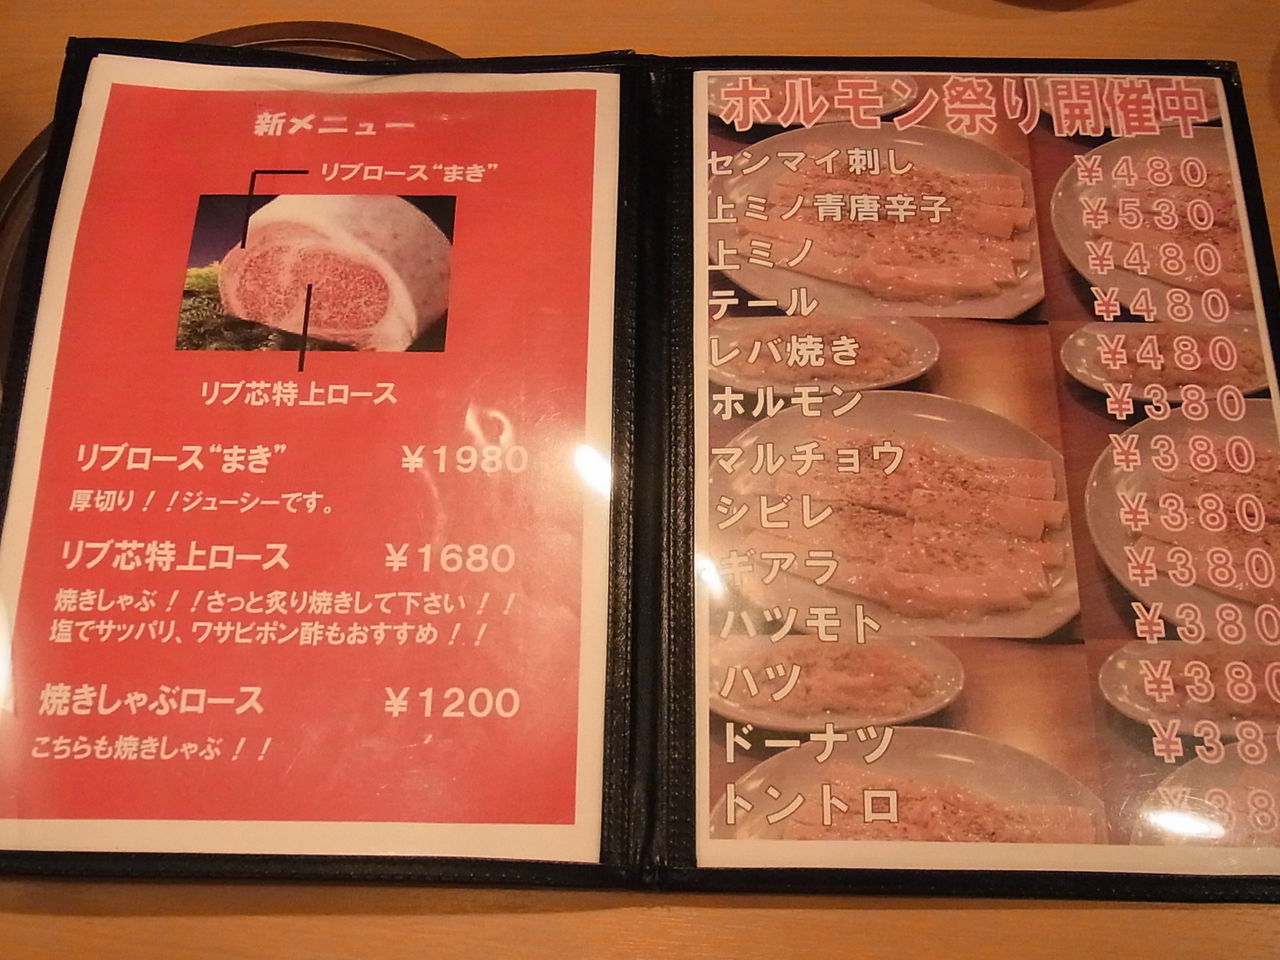 新メニュー
リブロース“まき”
リブ芯特上ロース
リブロース“まき” ¥1980
厚切り！！ジューシーです。
リブ芯特上ロース ¥1680
焼きしゃぶ！！さっと炙り焼きして下さい！！
塩でサッパリ、ワサビポン酢もおすすめ！！
焼きしゃぶロース ¥1200
こちらも焼きしゃぶ！！
ホルモン祭り開催中
センマイ刺し ¥480
上ミノ青唐辛子 ¥530
上ミノ ¥480
テール ¥480
レバ焼き ¥480
ホルモン ¥380
マルチョウ ¥380
シビレ ¥380
ギアラ ¥380
ハツモト ¥380
ハツ ¥380
ドーナツ ¥38
トントロ